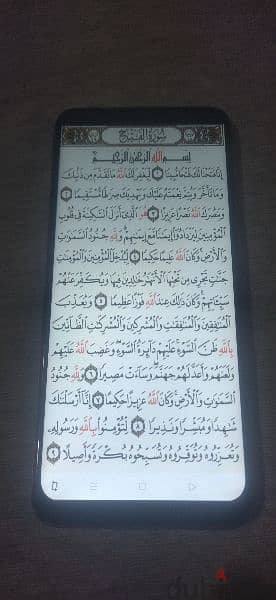 سُورَةُ الفَتْحِ
بِسْمِ اللَّهِ الرَّحْمَٰنِ الرَّحِيمِ
إِنَّا فَتَحْنَا لَكَ فَتْحًا مُبِينًا ١ لِيَغْفِرَ لَكَ اللَّهُ مَا تَقَدَّمَ مِنْ ذَنْبِكَ
وَمَا تَأَخَّرَ وَيُتِمَّ نِعْمَتَهُ عَلَيْكَ وَيَهْدِيَكَ صِرَاطًا مُسْتَقِيمًا ٢
وَيَنْصُرَكَ اللَّهُ نَصْرًا عَزِيزًا ٣ هُوَ الَّذِي أَنْزَلَ السَّكِينَةَ فِي قُلُوبِ
الْمُؤْمِنِينَ لِيَزْدَادُوا إِيمَانًا مَعَ إِيمَانِهِمْ وَلِلَّهِ جُنُودُ السَّمَوَاتِ
وَالْأَرْضِ وَكَانَ اللَّهُ عَلِيمًا حَكِيمًا ٤ لِيُدْخِلَ الْمُؤْمِنِينَ وَالْمُؤْمِنَاتِ
جَنَّاتٍ تَجْرِي مِنْ تَحْتِهَا الْأَنْهَارُ خَالِدِينَ فِيهَا وَيُكَفِّرَ عَنْهُمْ
سَيِّئَاتِهِمْ وَكَانَ ذَلِكَ عِنْدَ اللَّهِ فَوْزًا عَظِيمًا ٥ وَيُعَذِّبَ
الْمُنَافِقِينَ وَالْمُنَافِقَاتِ وَالْمُشْرِكِينَ وَالْمُشْرِكَاتِ الظَّانِّينَ
بِاللَّهِ ظَنَّ السَّوْءِ عَلَيْهِمْ دَائِرَةُ السَّوْءِ وَغَضِبَ اللَّهُ عَلَيْهِمْ
وَلَعَنَهُمْ وَأَعَدَّ لَهُمْ جَهَنَّمَ وَسَاءَتْ مَصِيرًا ٦ وَلِلَّهِ جُنُودُ
السَّمَوَاتِ وَالْأَرْضِ وَكَانَ اللَّهُ عَزِيزًا حَكِيمًا ٧ إِنَّا أَرْسَلْنَاكَ
شَاهِدًا وَمُبَشِّرًا وَنَذِيرًا ٨ لِتُؤْمِنُوا بِاللَّهِ وَرَسُولِهِ
وَتُعَزِّرُوهُ وَتُوَقِّرُوهُ وَتُسَبِّحُوهُ بُكْرَةً وَأَصِيلًا ٩
4